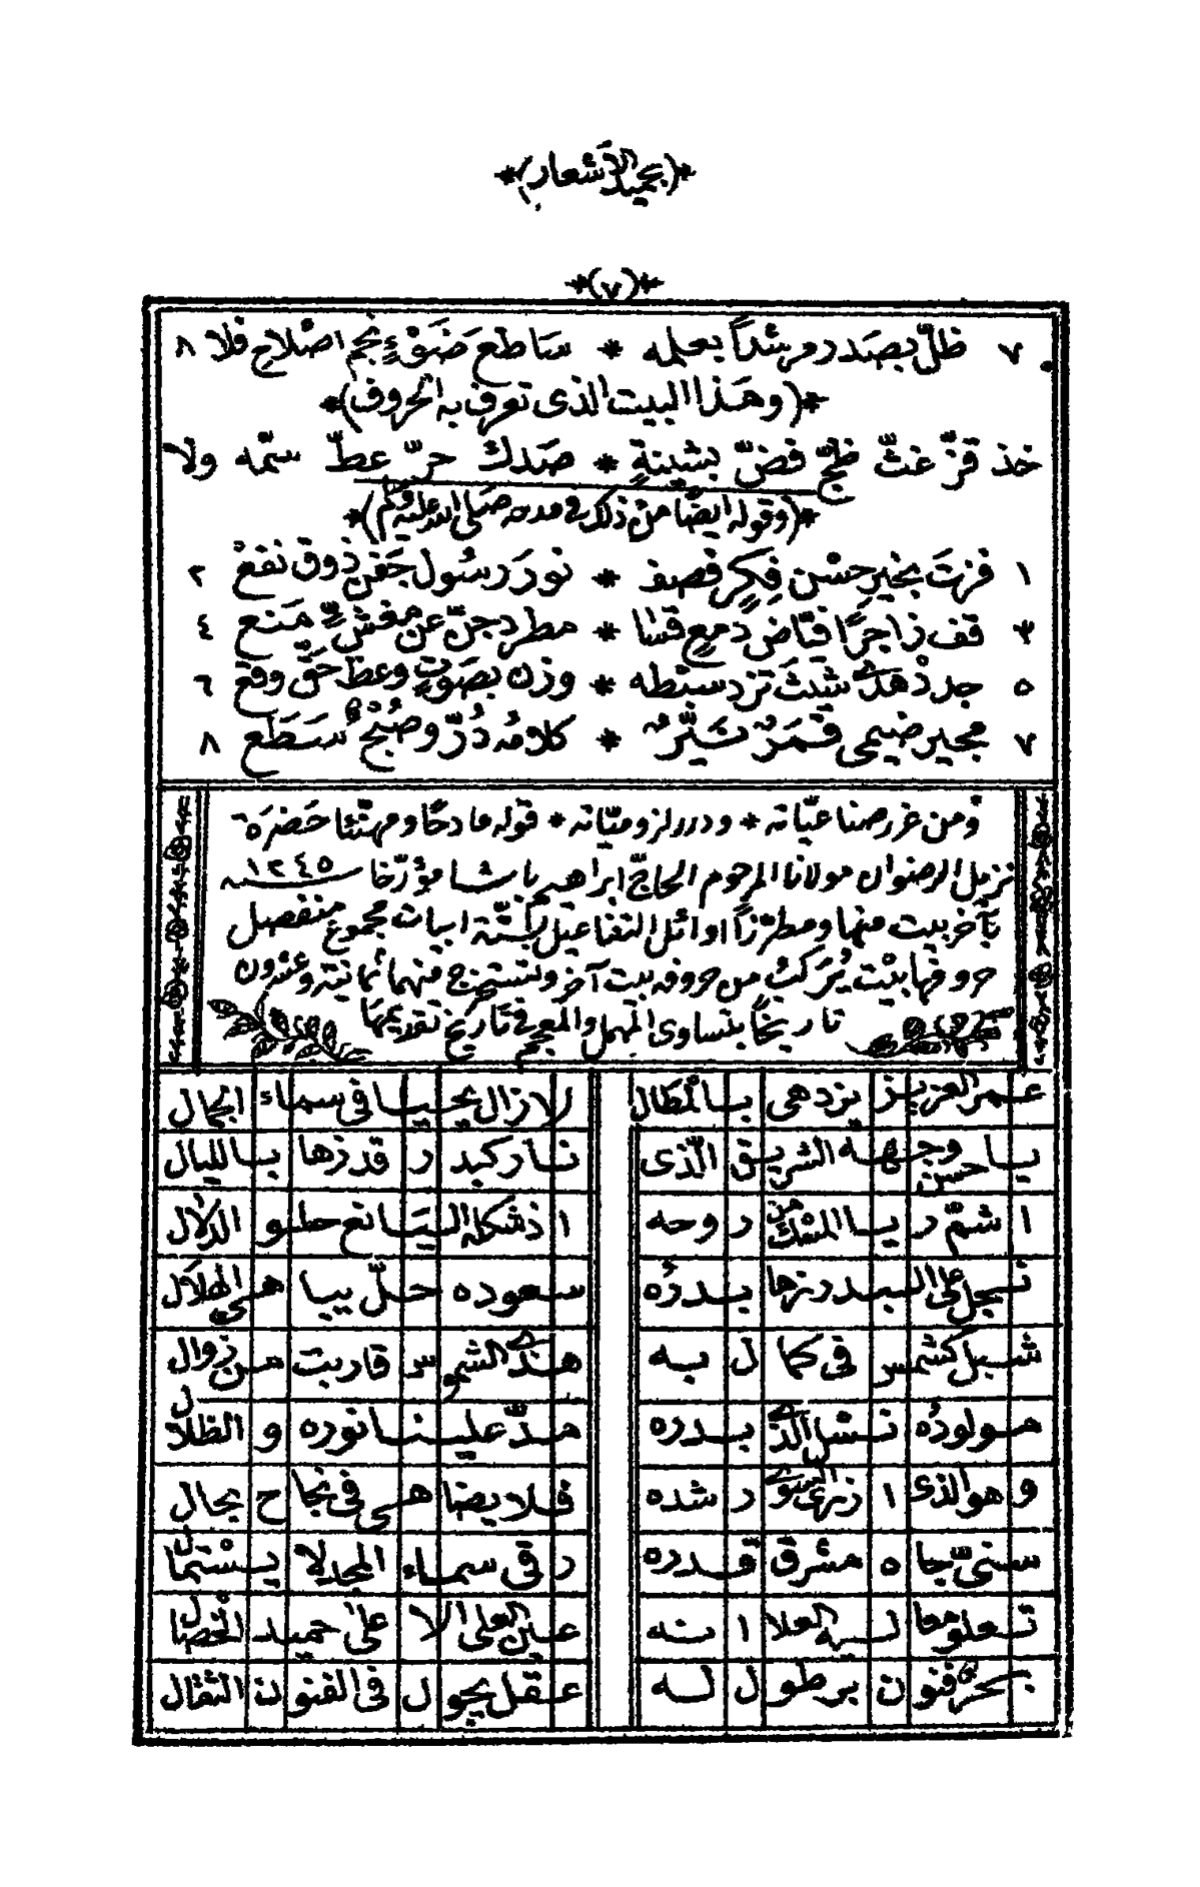 *(بحميد الأشعار)*
*(٧)*
٧ ظلّ بصدد مرشدًا بعلمه * ساطع ضَوْءٍ نجم اصْلاحٍ فلا ٨
*(وهذا البيت الذى تعرف به الحروف)*
خذ قزّ غثّ ظجّ فضّ بشينةٍ * صدك حرّ عطّ سمّه ولا
*(وقوله ايضًا من ذلك فى مدحه صلى الله عليه وسلم)*
١ فزتَ بخيرِ حسْن فِكرٍ قصف * نور رسُول جفن ذوق نفع ٢
٣ قف زاجرًا فيّاض دمعٍ قسا * مطر دجنّ عن مفشٍّ منع ٤
٥ جد ذهدى شيثَ تزد سبطه * وزن بصوتٍ وعظ حقّ وقع ٦
٧ مجير ضيمى قمرٌ نيّرٌ * كلامه دُرّ وصُبْحٌ سَطَع ٨
ومن غرر صناعيّاته * ودرر لزوميّاته * قوله مادحًا ومهنّئا حضرَة
نزيل الرضوان مولانا المرحوم الحاجّ ابراهيم باشا مؤرّخا سنة ١٢٤٥
بآخر بيت منها ومطرّزًا اوائل التفاعيل بستّة ابيات مجموع منفصل
حروفها بيْت يُتركبُ من حروفه بيت آخر وتستخرج منهما ثمانية وعشرون
تاريخًا بتساوى المهمل والمعجم فى تاريخ تقديمها
عمر العزيز يزدهى بالمطال لازال يحيا فى سماء الجمال
يا حسن وجهه الشريق الّذى نار كبد ر قد زها بالليال
ا شمّ ر يا المسك من ر وحه ا ذ شكله اليانع حلو الدلال
تجلى على البدر زها بدره سعوده حلّ بيا هى الهلال
شبل كشمس فى كما ل به هذى الشموس قاربت من زوال
مولوده نسل الذى بدره مدّ علينا نوره و الظلال
و هو الذى ا زهى السوى ر شده فلا يضاهى فى نجا ح بحال
سنىّ جا ه مشرق قدره ر قى سماء المجد لا يستمال
تعلو معا ليه العلا ا نه عين العلى الا على حميد الخصال
بحر فنون بر طو ل له عقل يجو ل فى الفنون الثقال